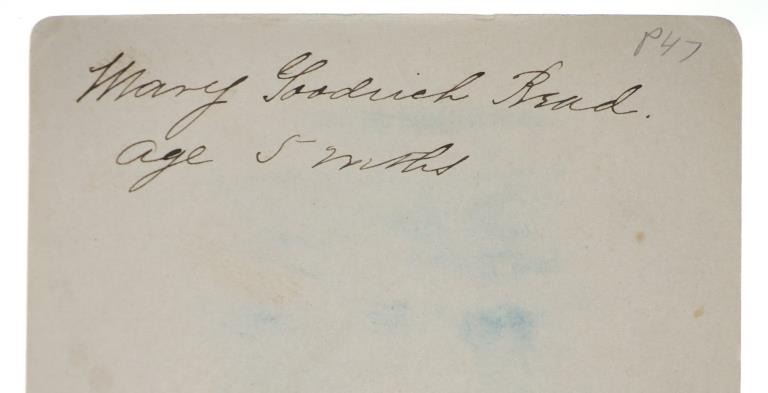 P47
Mary Goodrich Read.
age 5 mths